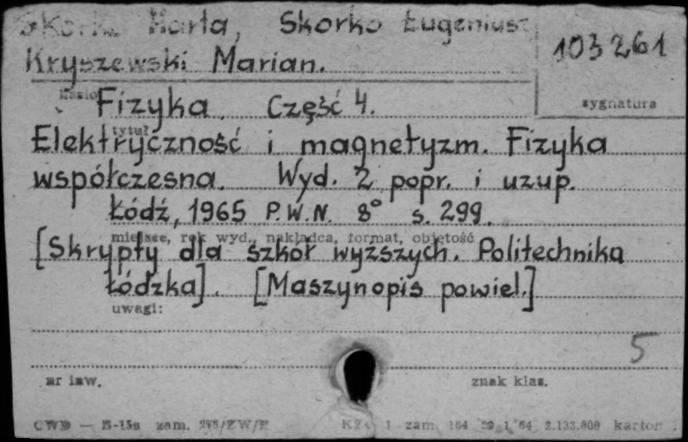 Skorko Marta, Skorko Eugeniusz
103261
Kryszewski Marian.
hasło
Fizyka. Część 4.
sygnatura
tytuł
Elektryczność i magnetyzm. Fizyka
współczesna. Wyd. 2 popr. i uzup.
Łódź, 1965 P.W.N. 8° s. 299.
miejsce, rok wyd., nakładca, format, objętość
[Skrypty dla szkół wyższych. Politechnika
Łódzka]. [Maszynopis powiel.]
uwagi:
5
nr inw.
znak klas.
CWD — zam. 1 zam. 164 64 2.133.000 karton